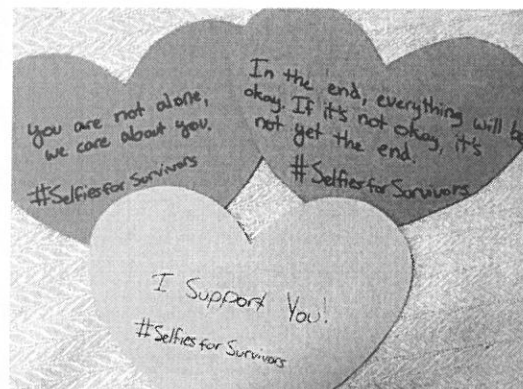 You are not alone,
we care about you.
#Selfies for Survivors
In the end, everything will be
okay. If it's not okay, it's
not yet the end.
#Selfies for Survivors
I Support You!
#Selfies for Survivors